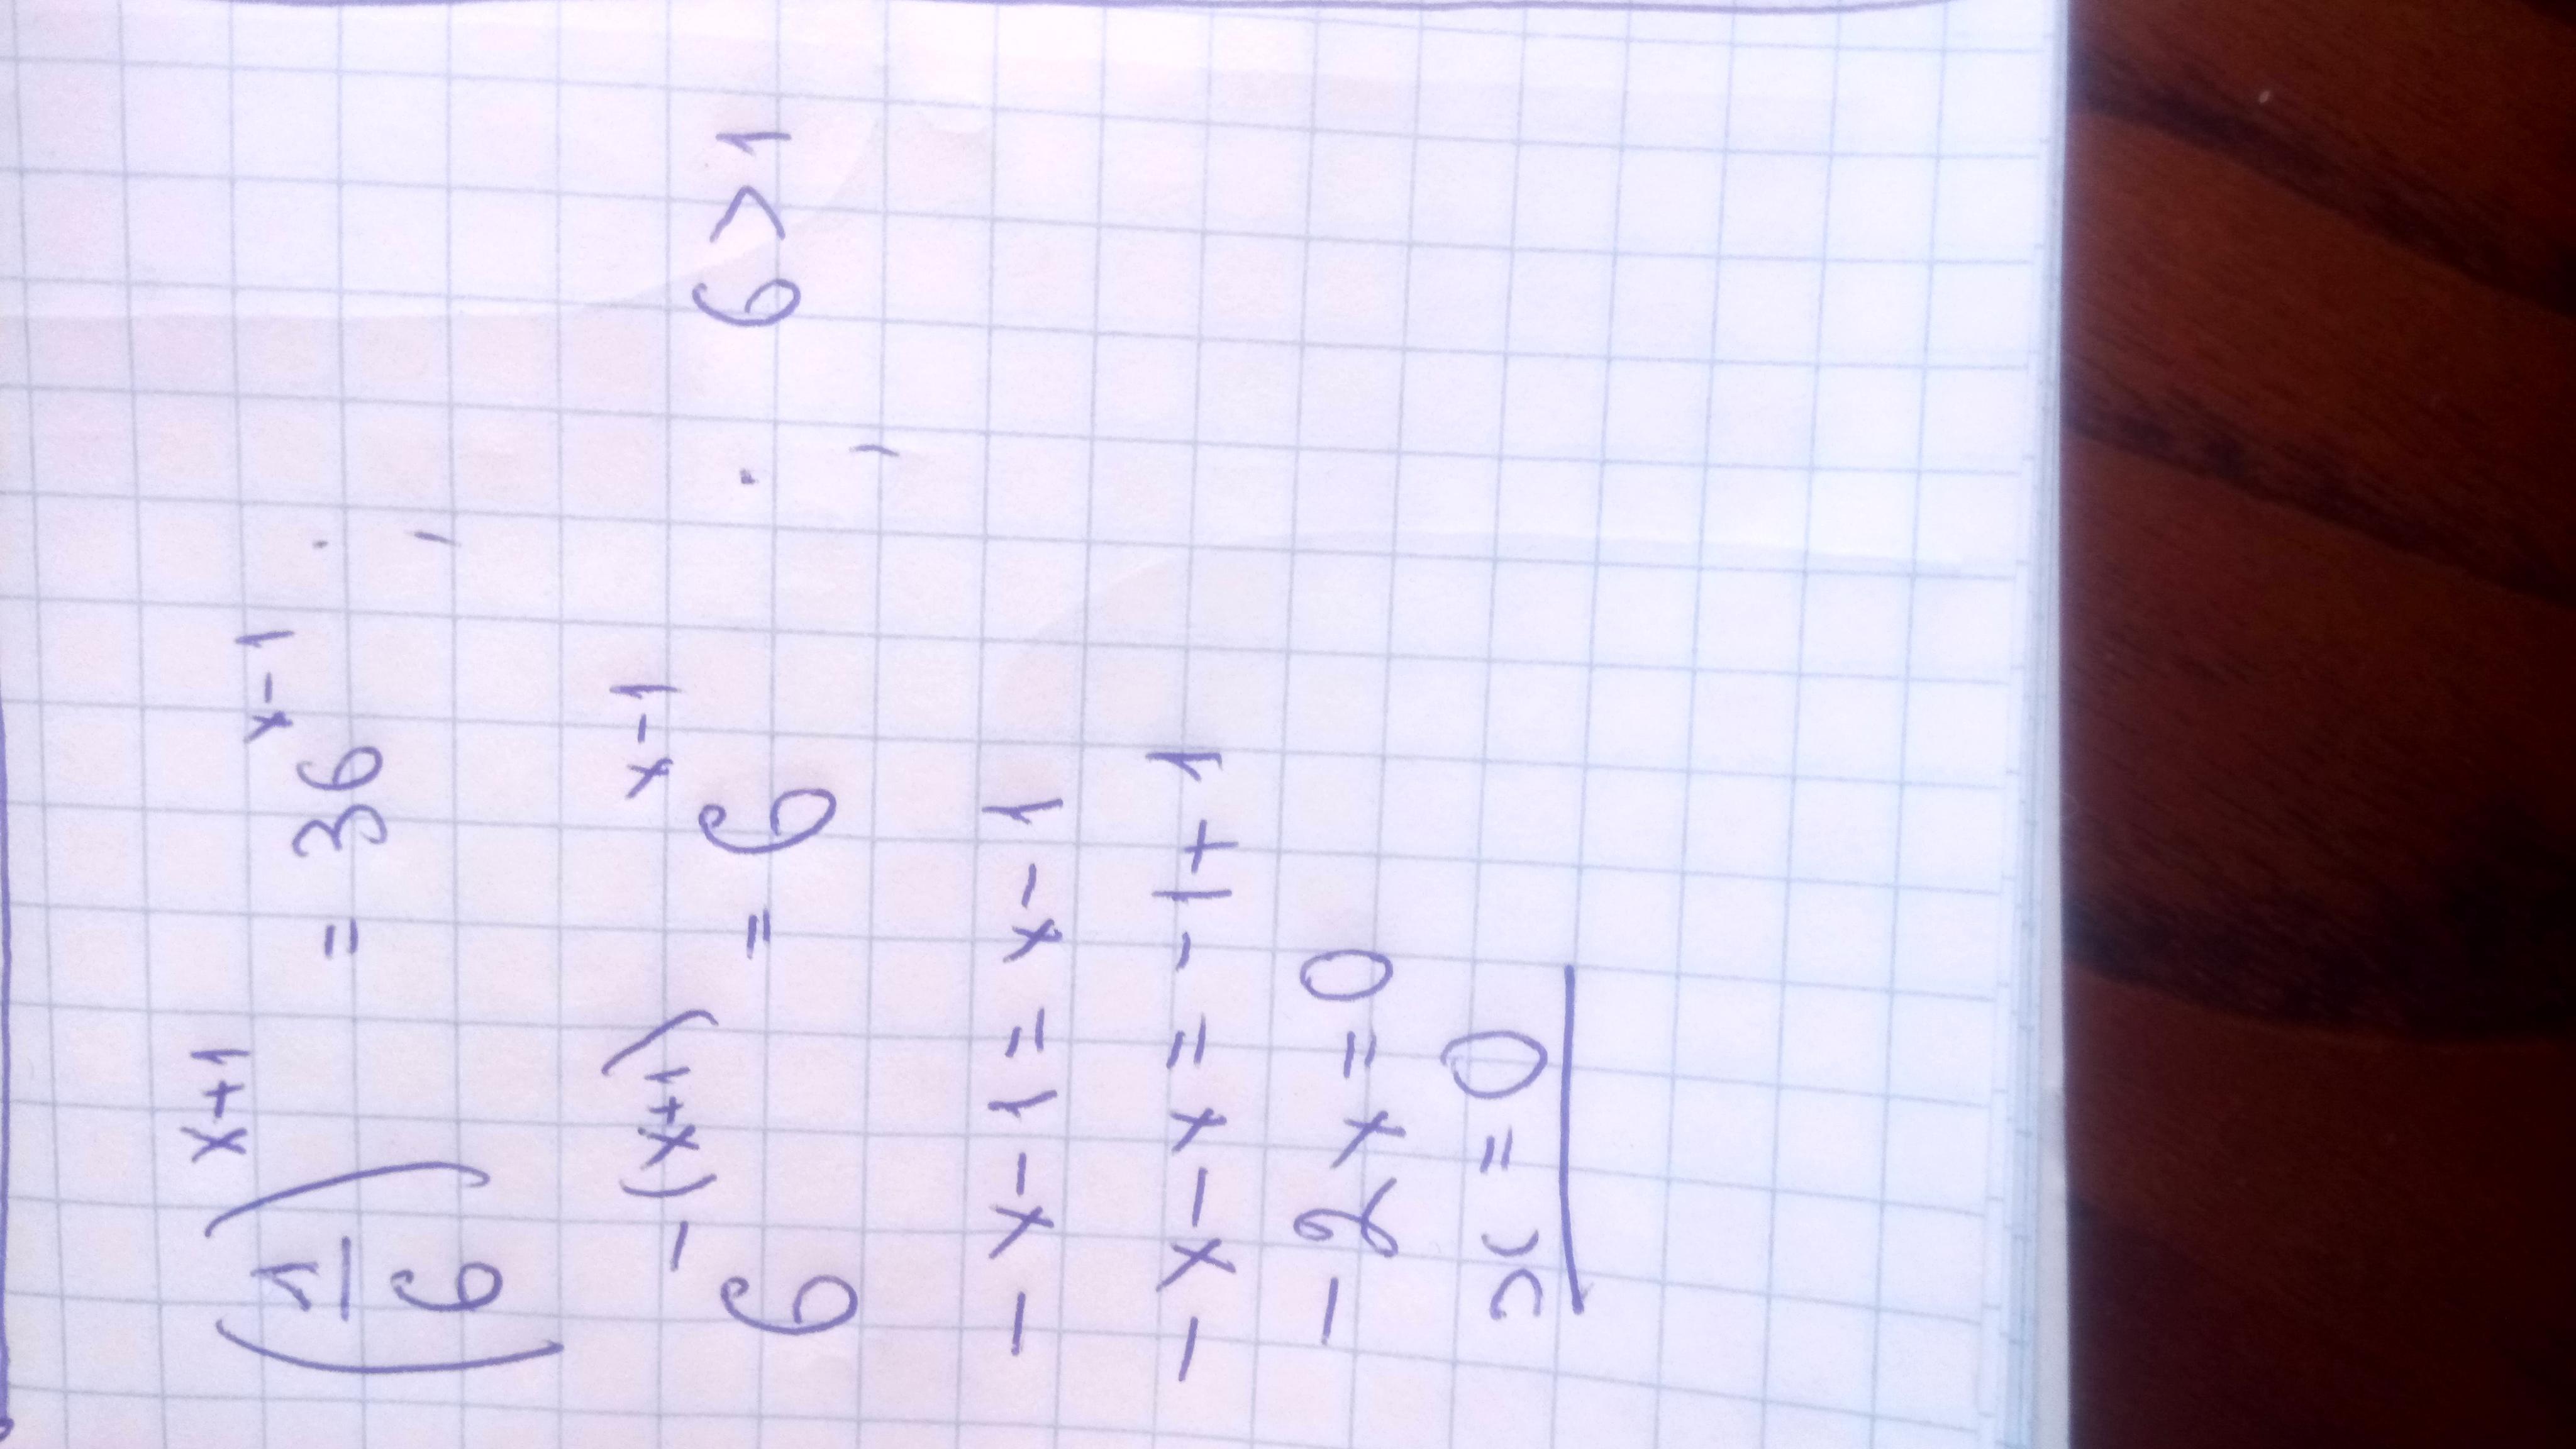 (1/6)^(x+1) = 36^(x-1) ;
6^(-(x+1)) = 6^(x-1) ; 6 > 1
-x-1 = x-1
-x-x = -1+1
-2x = 0
x = 0